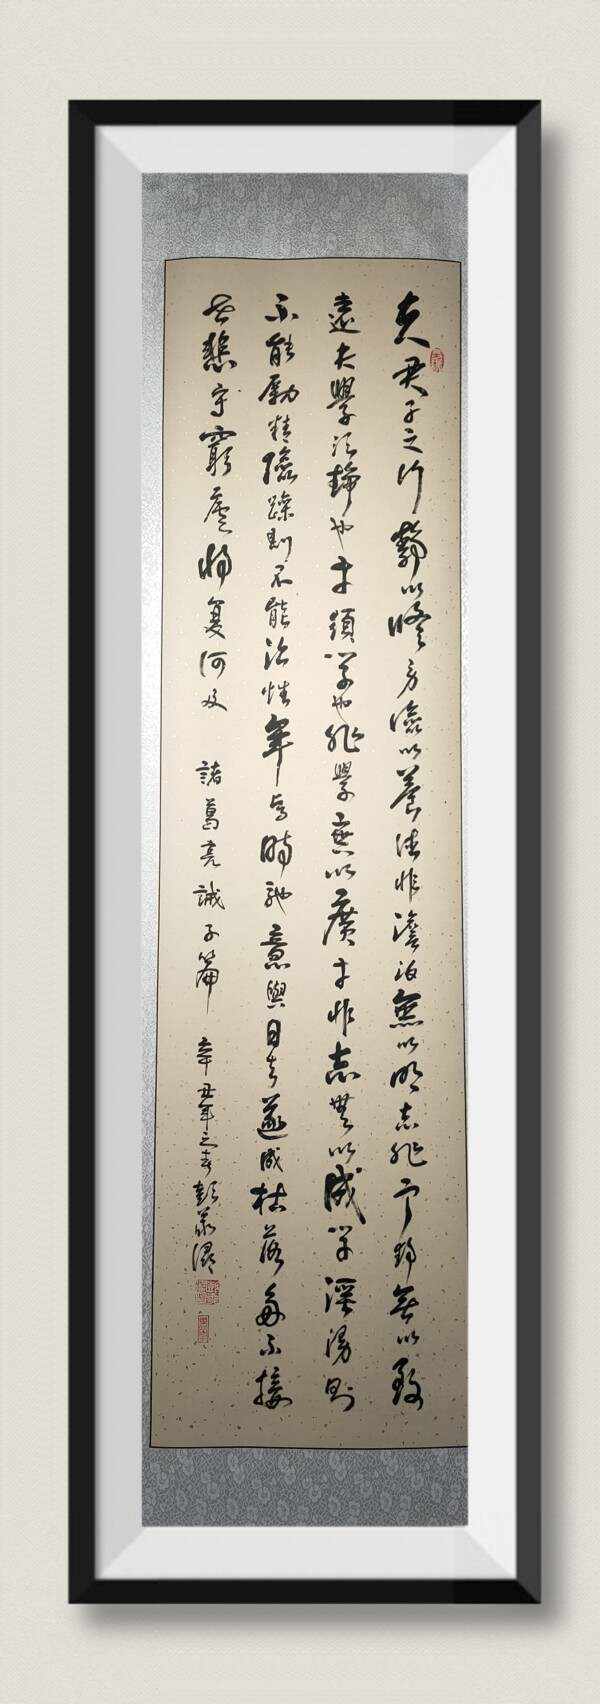 夫君子之行靜以修身儉以養德非澹泊無以明志非寧靜無以致
遠夫學須靜也才須學也非學無以廣才非志無以成學淫漫則
不能勵精險躁則不能治性年與時馳意與日去遂成枯落多不接
世悲守窮廬將复何及 諸葛亮誡子篇 辛丑年之春彭